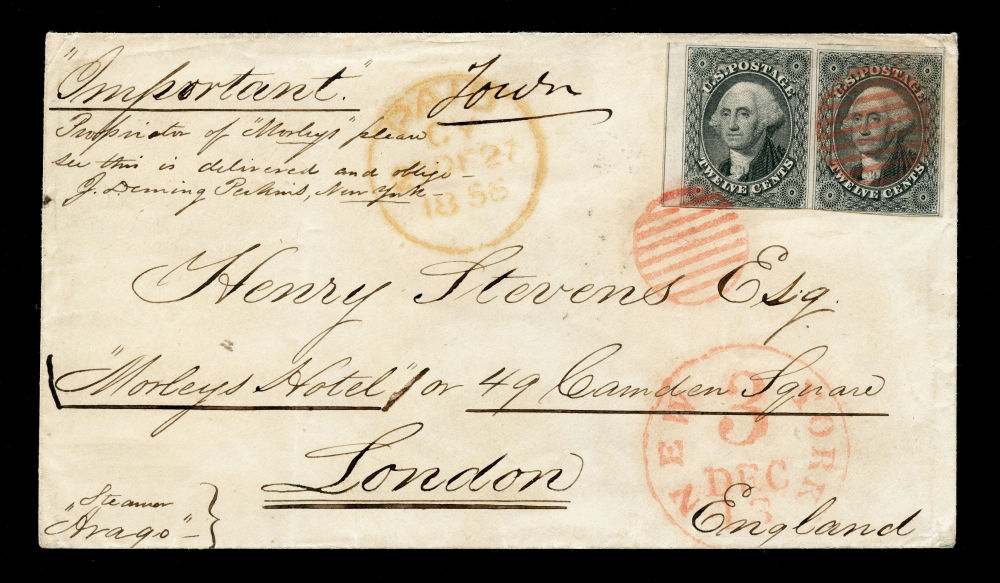 "Important."
Town
Proprietor of "Morleys" please
see this is delivered and oblige -
J. Deming Perkins, New York -
U.S. POSTAGE
TWELVE CENTS
U.S. POSTAGE
TWELVE CENTS
PAID
27
18
Henry Stevens Esq.
"Morleys Hotel" or 49 Camden Square
London
England
NEW YORK
3
DEC
"Steamer
"Arago" -